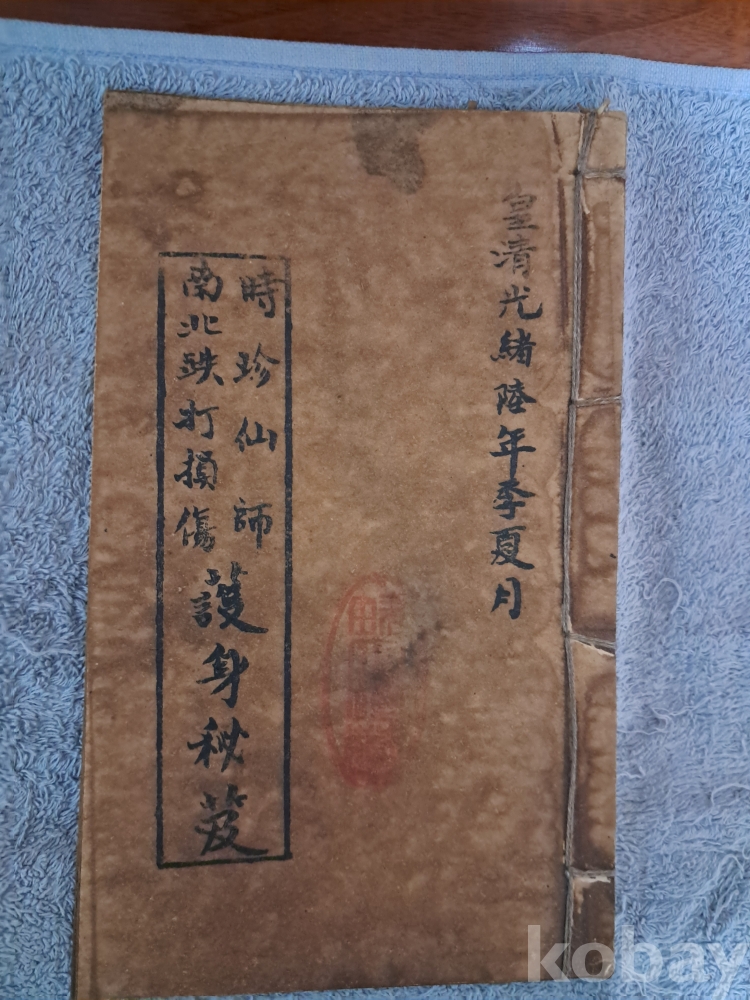 皇清光緒陸年季夏月
時珍仙師
南北跌打損傷
護身秘笈
kobay